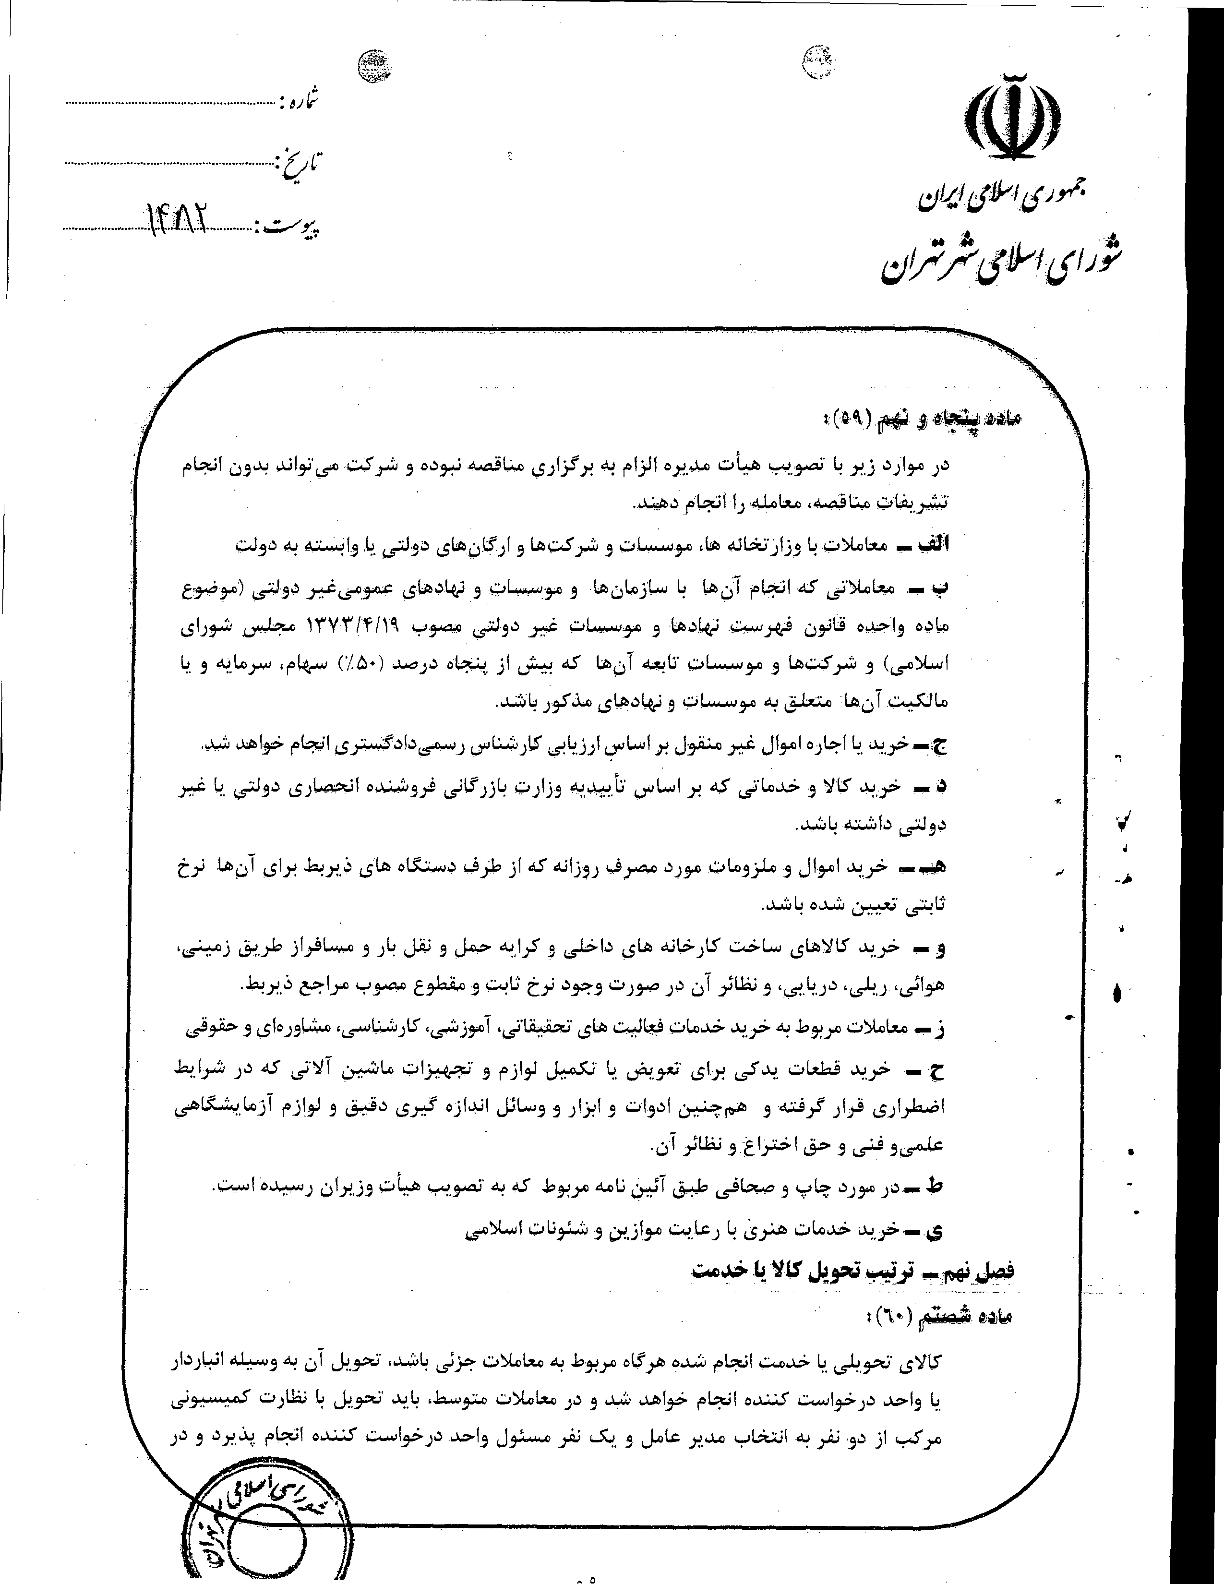 جمهوری اسلامی ایران
شورای اسلامی شهر تهران
شماره :
تاریخ :
پیوست : ۱۴۸۲
ماده پنجاه و نهم (۵۹):
در موارد زیر با تصویب هیأت مدیره الزام به برگزاری مناقصه نبوده و شرکت می‌تواند بدون انجام
تشریفات مناقصه، معامله را انجام دهند.
الف – معاملات با وزارتخانه ها، موسسات و شرکت‌ها و ارگان‌های دولتی یا وابسته به دولت
ب – معاملاتی که انجام آن‌ها با سازمان‌ها و موسسات و نهادهای عمومی‌غیر دولتی (موضوع
ماده واحده قانون فهرست نهادها و موسسات غیر دولتی مصوب ۱۳۷۳/۴/۱۹ مجلس شورای
اسلامی) و شرکت‌ها و موسسات تابعه آن‌ها که بیش از پنجاه درصد (۵۰٪) سهام، سرمایه و یا
مالکیت آن‌ها متعلق به موسسات و نهادهای مذکور باشد.
ج – خرید یا اجاره اموال غیر منقول بر اساس ارزیابی کارشناس رسمی‌دادگستری انجام خواهد شد.
د – خرید کالا و خدماتی که بر اساس تأییدیه وزارت بازرگانی فروشنده انحصاری دولتی یا غیر
دولتی داشته باشد.
هـ – خرید اموال و ملزومات مورد مصرف روزانه که از طرف دستگاه های ذیربط برای آن‌ها نرخ
ثابتی تعیین شده باشد.
و – خرید کالاهای ساخت کارخانه های داخلی و کرایه حمل و نقل بار و مسافراز طریق زمینی،
هوائی، ریلی، دریایی، و نظائر آن در صورت وجود نرخ ثابت و مقطوع مصوب مراجع ذیربط.
ز – معاملات مربوط به خرید خدمات فعالیت های تحقیقاتی، آموزشی، کارشناسی، مشاوره‌ای و حقوقی
ح – خرید قطعات یدکی برای تعویض یا تکمیل لوازم و تجهیزات ماشین آلاتی که در شرایط
اضطراری قرار گرفته و هم‌چنین ادوات و ابزار و وسائل اندازه گیری دقیق و لوازم آزمایشگاهی
علمی‌و فنی و حق اختراع و نظائر آن.
ط – در مورد چاپ و صحافی طبق آئین نامه مربوط که به تصویب هیأت وزیران رسیده است.
ی – خرید خدمات هنری با رعایت موازین و شئونات اسلامی
فصل نهم – ترتیب تحویل کالا یا خدمت
ماده شصتم (۶۰):
کالای تحویلی یا خدمت انجام شده هرگاه مربوط به معاملات جزئی باشد، تحویل آن به وسیله انباردار
یا واحد درخواست کننده انجام خواهد شد و در معاملات متوسط، باید تحویل با نظارت کمیسیونی
مرکب از دو نفر به انتخاب مدیر عامل و یک نفر مسئول واحد درخواست کننده انجام پذیرد و در
شورای اسلامی شهر تهران